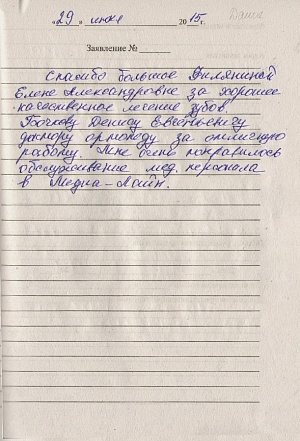 «29» июля 2015 г.
Заявление №
Спасибо большое
Елене Александровне за хорошее
качественное лечение зубов
Бочкову Денису Евгеньевичу
доктору ортопеду за отличную
работу. Мне очень понравилось
обслуживание мед. персонала
в Медиа-Лайн.